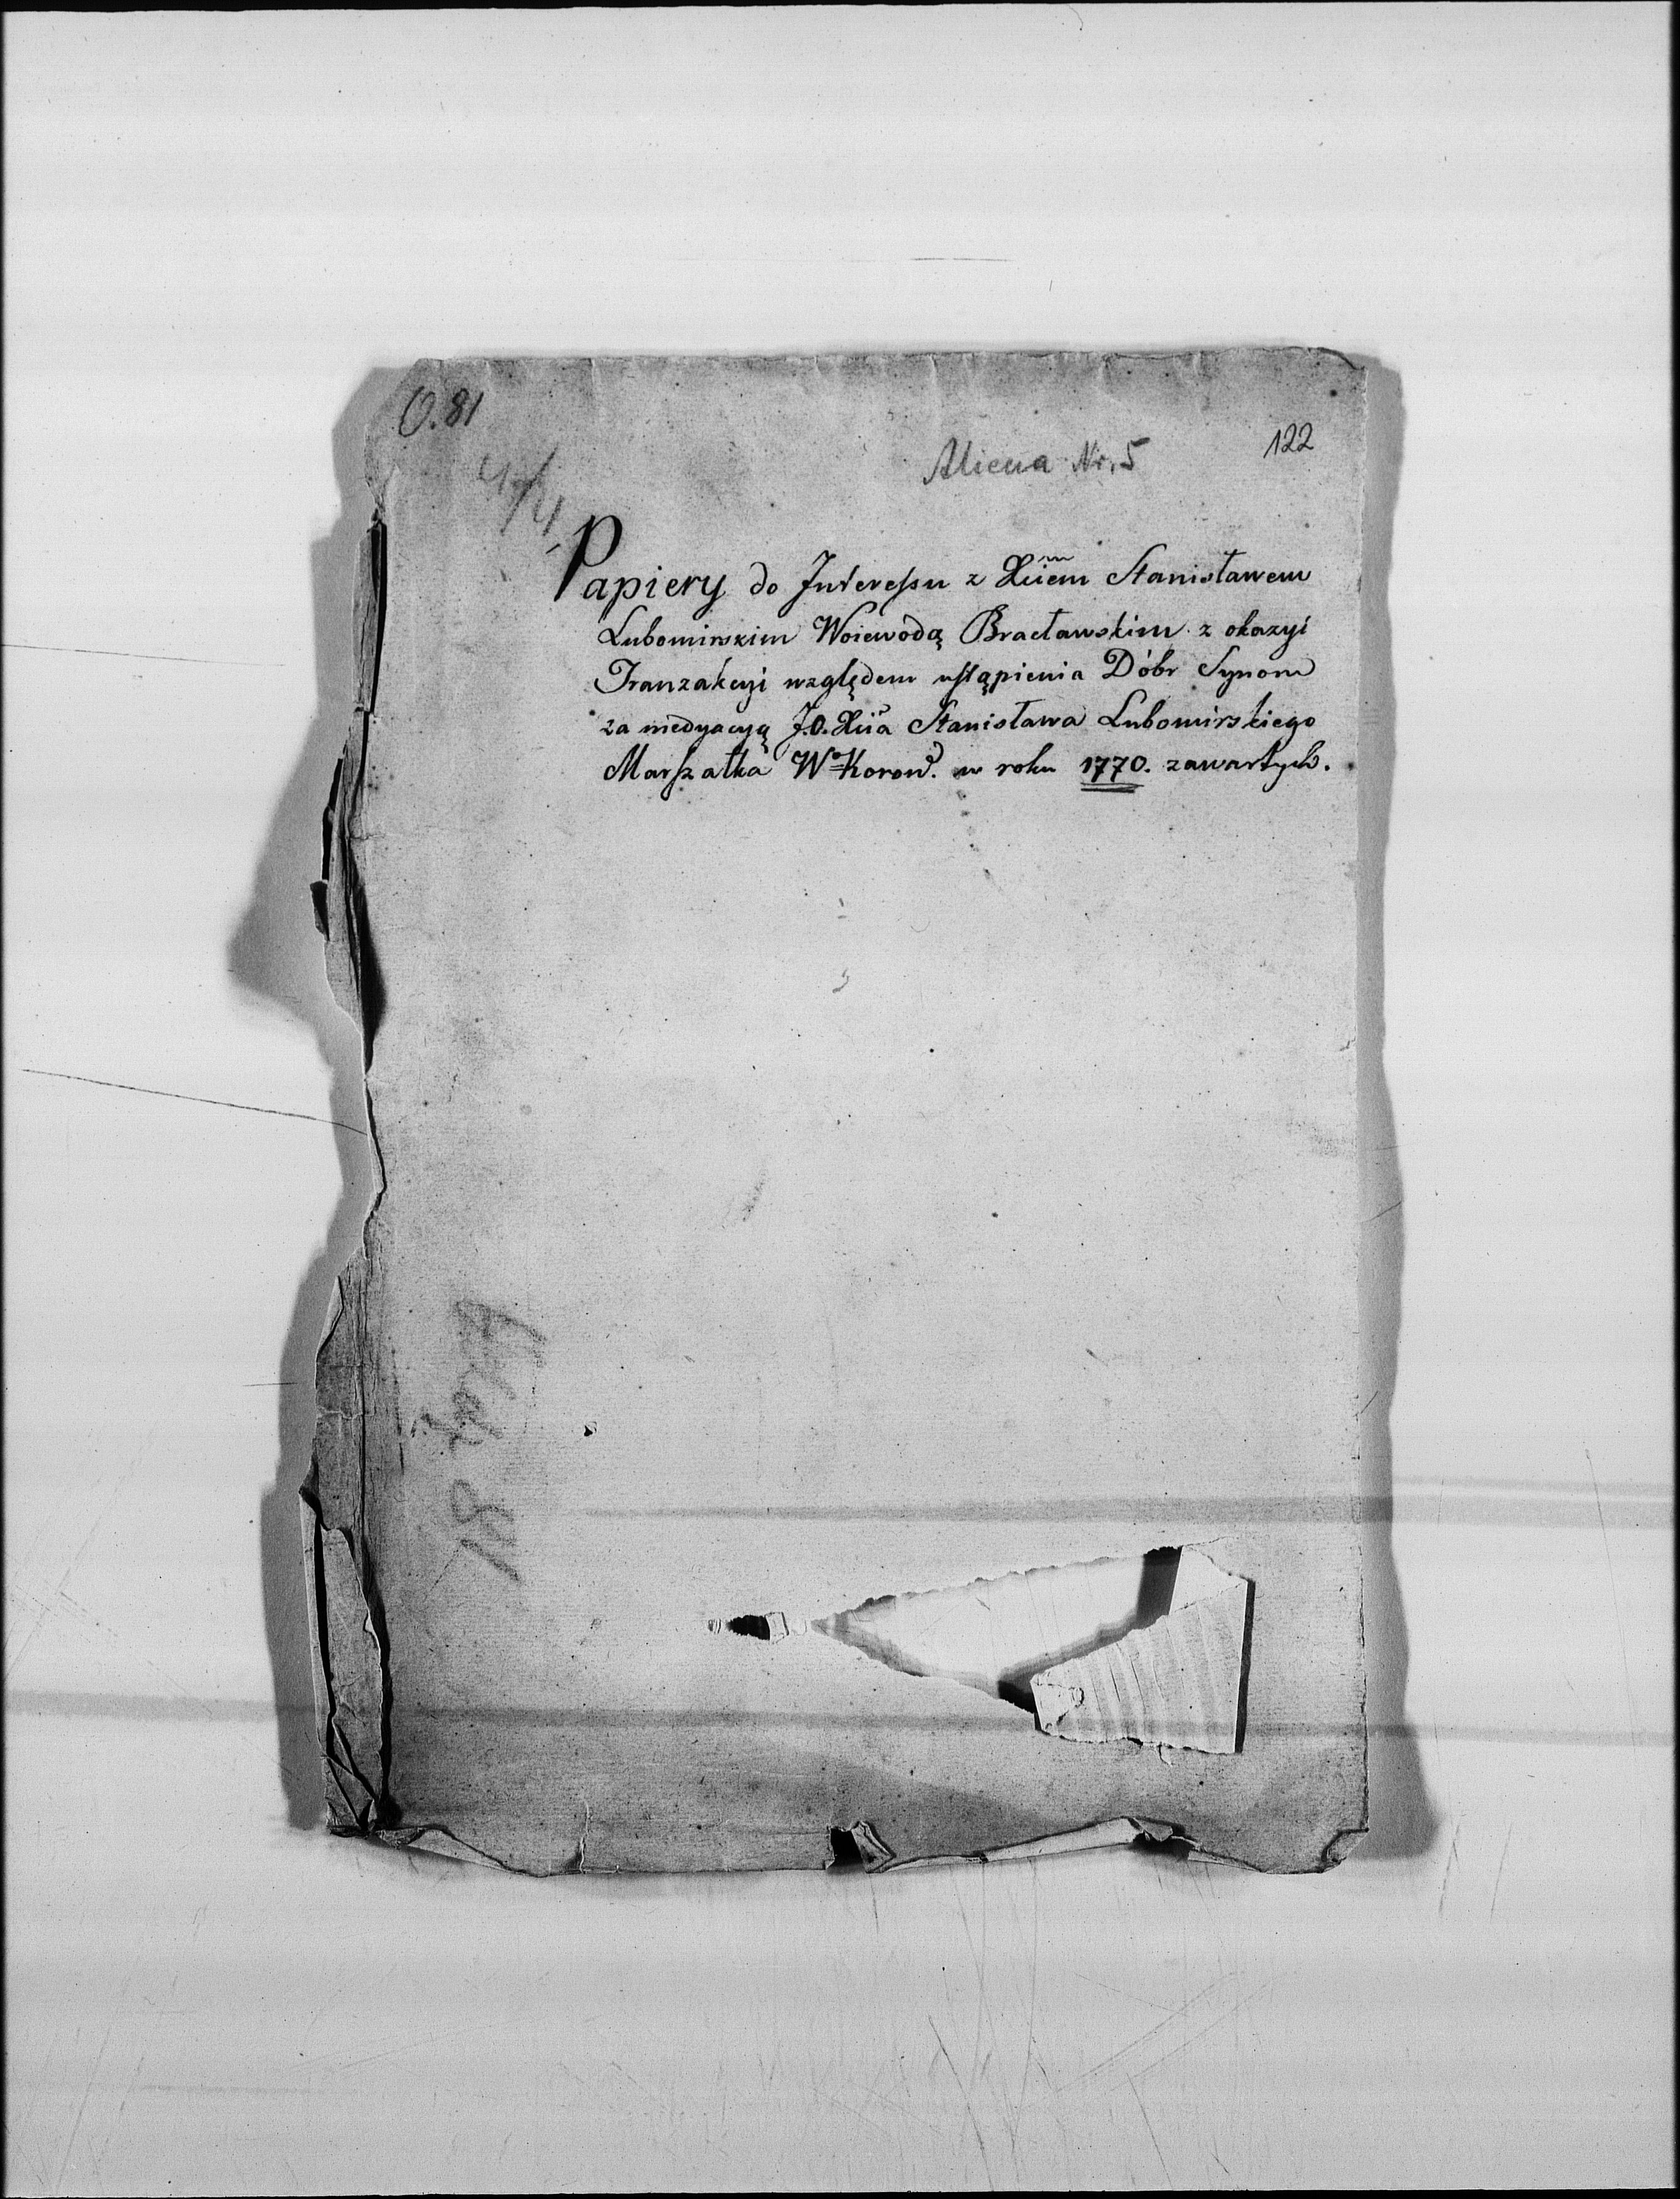 O. 81
Aliena Nr. 5
122
Papiery do Interessu z Xiiem Stanisławem
Lubomirskim Woiewodą Bracławskim z okazyi
Tranzakcyi względem ustąpienia Dóbr Synom
za medyacyą J.O. Xiia Stanisława Lubomirskiego
Marszałka Wo Koron. w roku 1770. zawartych.